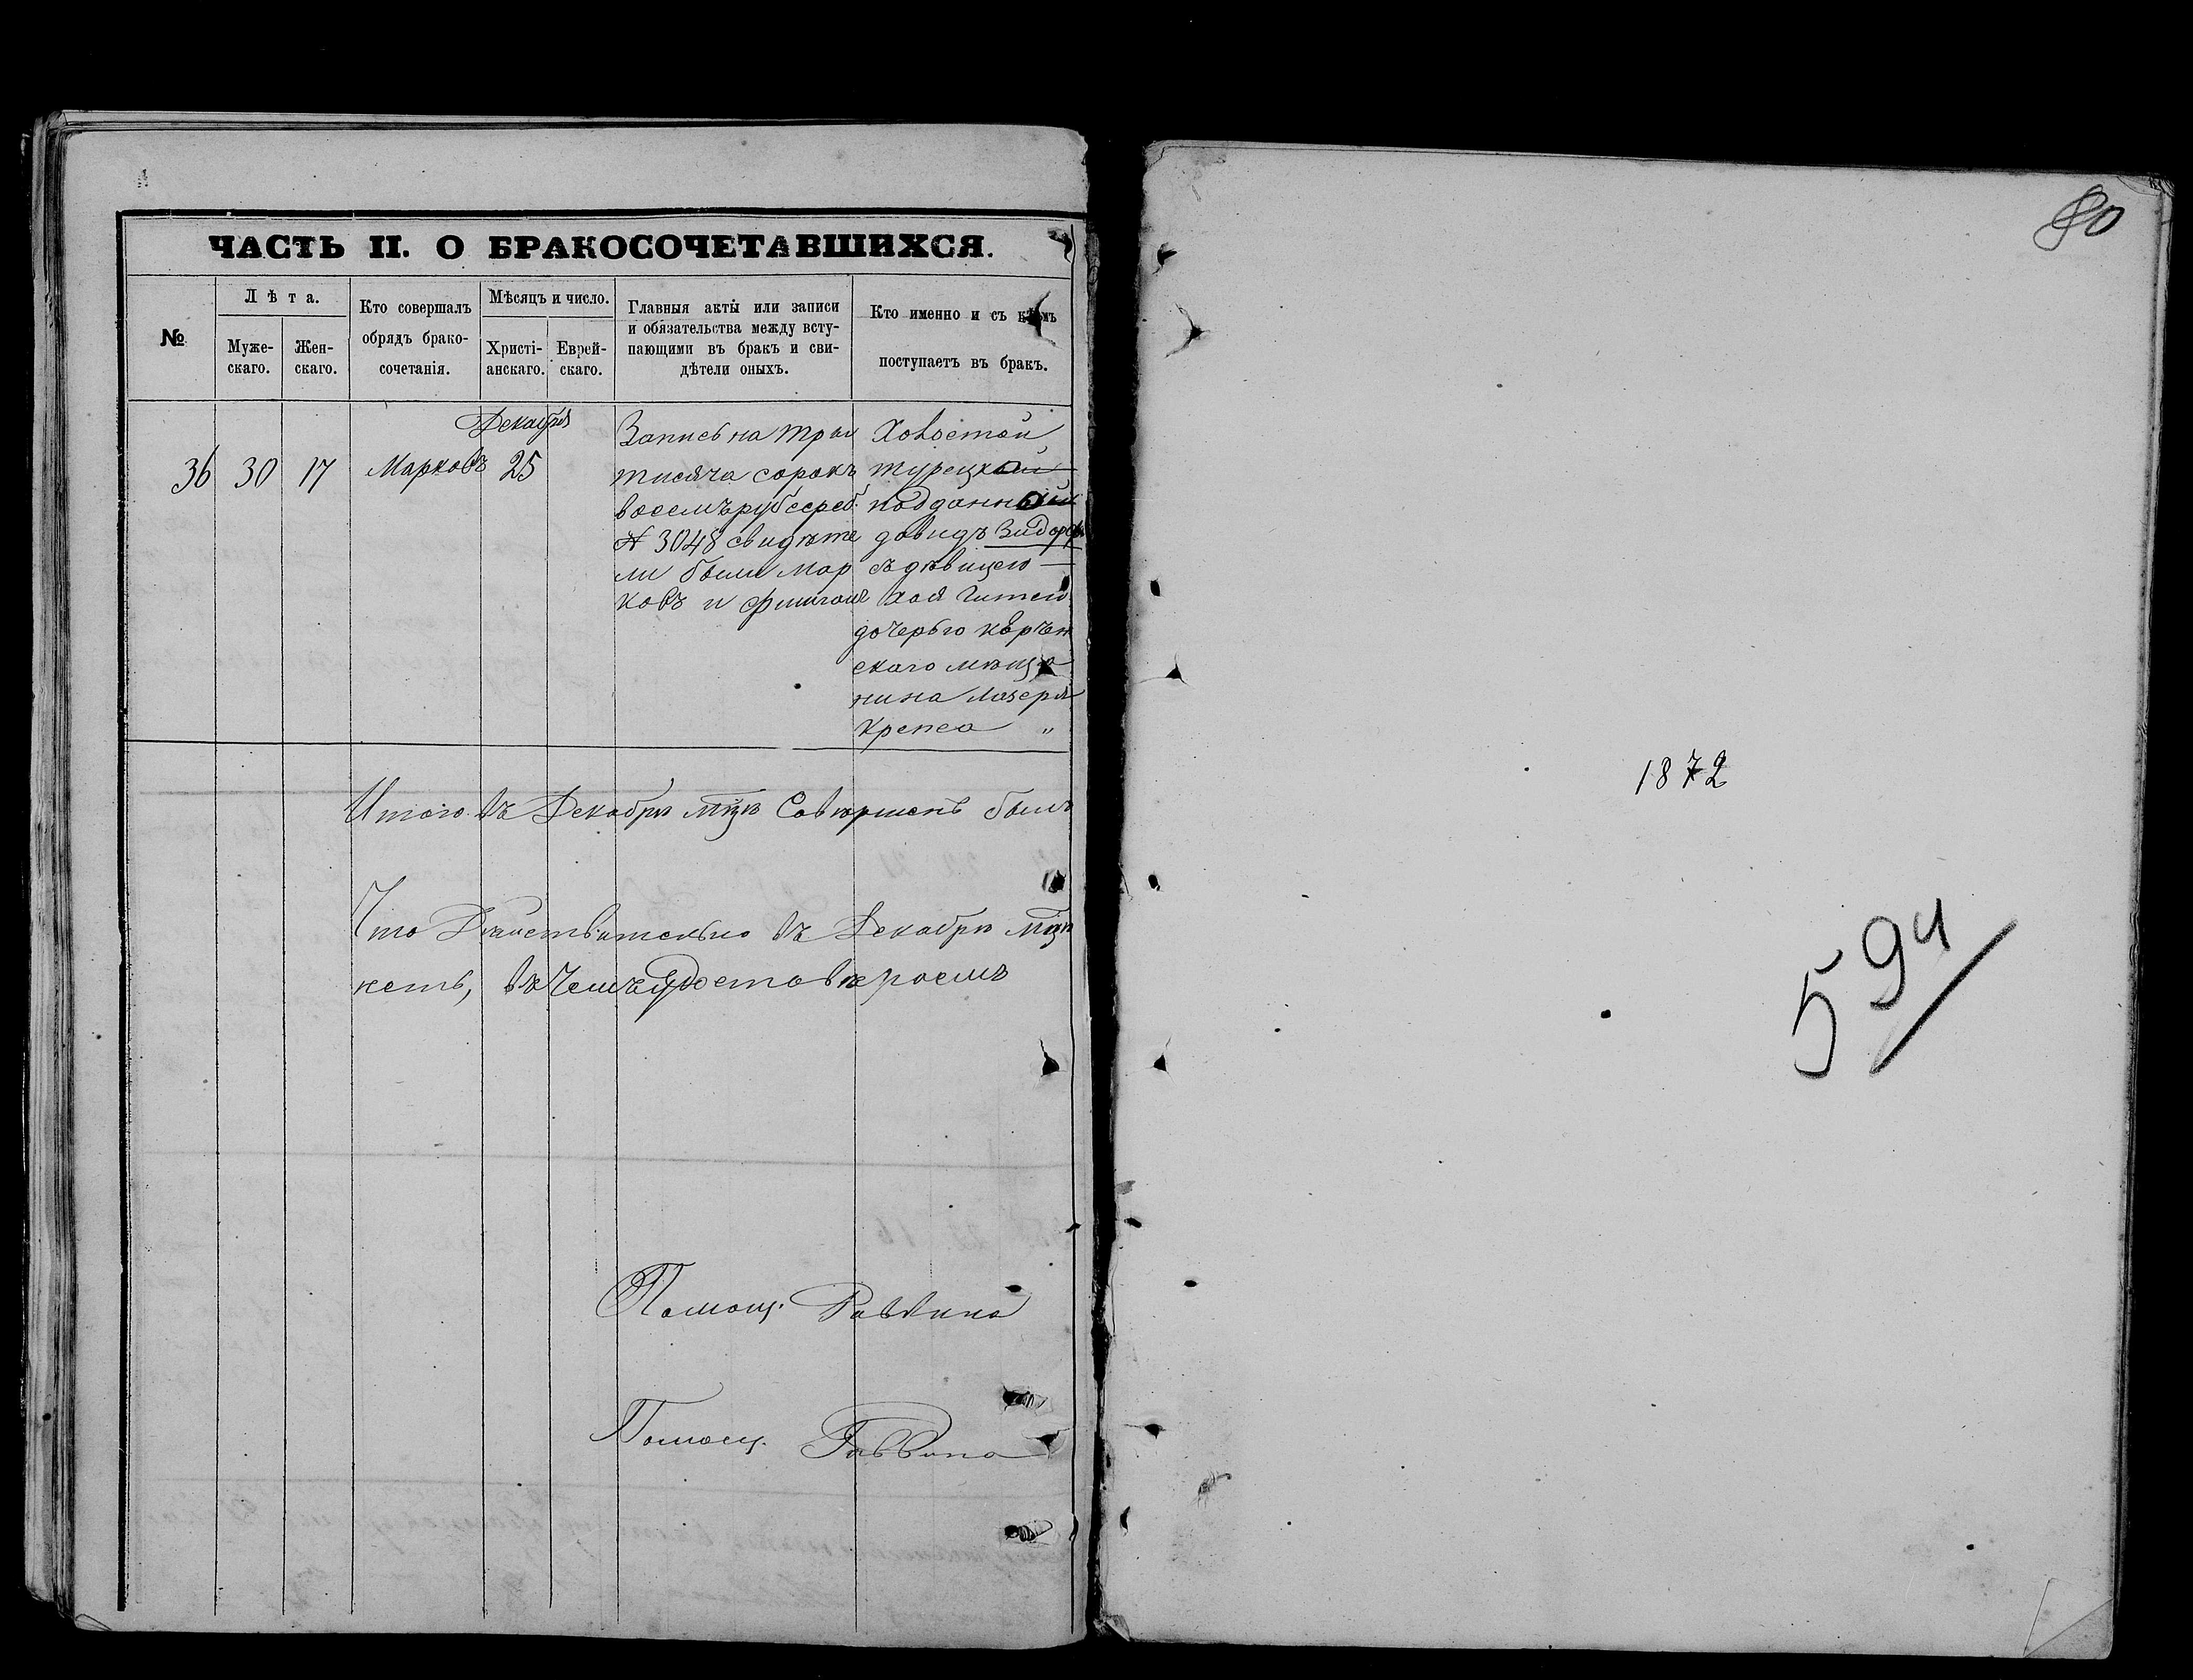 ЧАСТЬ II. О БРАКОСОЧЕТАВШИХСЯ.
№
Лѣта.
Муже-
скаго.
Жен-
скаго.
Кто совершалъ
обрядъ брако-
сочетанія.
Мѣсяцъ и число.
Христі-
анскаго.
Еврей-
скаго.
Главныя акты или записи
и обязательства между всту-
пающими въ бракъ и сви-
дѣтели оныхъ.
Кто именно и съ кѣмъ
поступаетъ въ бракъ.
36
30
17
Марковъ
Декабря
25
Запись на три
тисяча сорокъ
восемъ руб сереб.
№ 3048 свидѣте
ли были Мар
ковъ и
Холостой
турецкой
подданной
Довидъ
съ дѣвицею
Хая Гитею
дочерью керчен
скаго мѣща
нина Лазеря
Крепса "
Итого въ Декабрѣ мцѣ Совершенъ былъ
Что Дѣйствительно въ Декабрѣ мцѣ
кетъ, въ чемъ удостовѣряемъ
Помощ. Раввина
Помощ. Раввина
80
1872
594